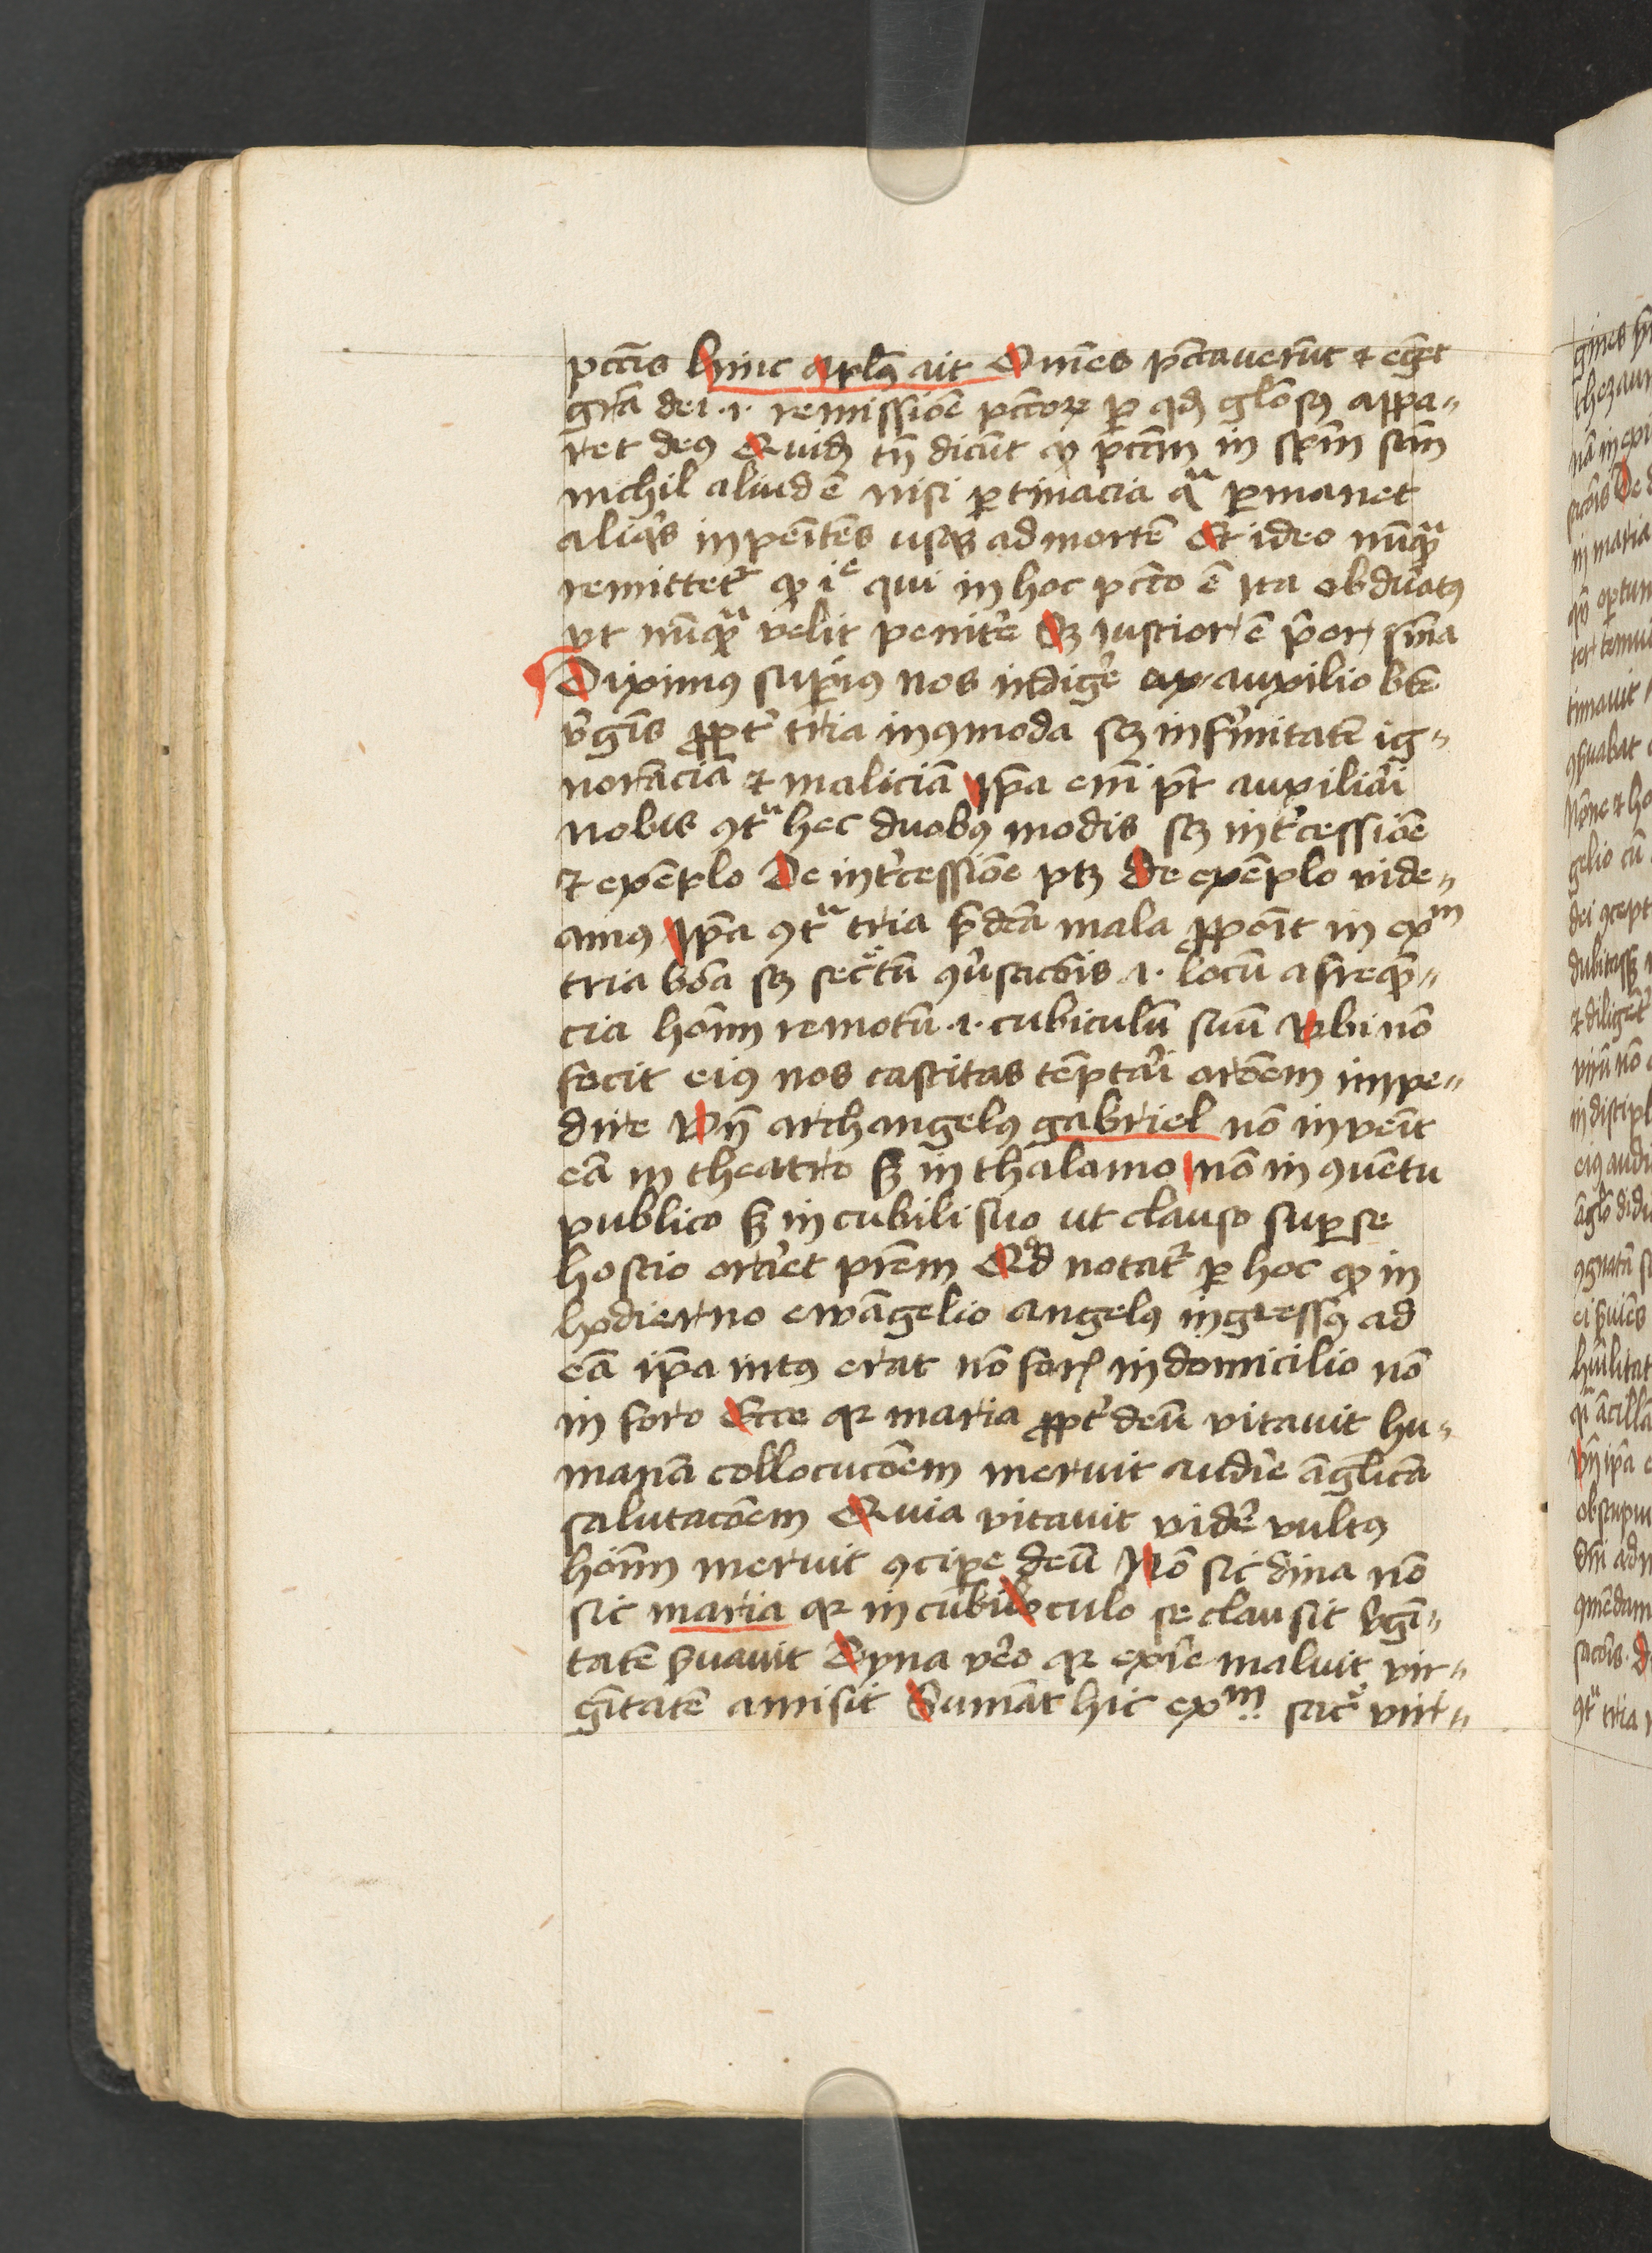 pctīs hinc apl̄us ait Om̄es pctauerūt ⁊ eḡet
gr̄a dei .i. remissiōe pctōꝝ ꝑ qđ glōsꝰ appa-
ret deꝰ Quidā tn̄ dicūt ꝙ pctm̄ in sp̄m sctm̄
nichil aliud ē nisi ꝑtinacia qᵃ ꝑmanet
aliqͥs inpenītēs usqꝫ ad mortē Et ideo nūqᵃ
remittetᷣ ꝙ iᵉ qui in hoc pctō ē ita obduratꝰ
vt nūqᵃ velit penitē Sꝫ iustior ē p̄or sn̄ia
Diximus supiꝰ nos indigē auxilio bt̄e
v̄gīs ꝓpt̄ tria incōmoda sꝫ infirmitatē ig-
norāciā ⁊ maliciā ip̄a em̄ pt̄ auxiliāi
nobis ꝯtᵃ hec duobꝰ modis sꝫ int̄cessiōe
⁊ exēplo De int̄cessiōe ptꝫ De exēplo vide-
amꝰ Ip̄a ꝯtᵃ tria p̄dc̄a mala ꝓpoīt in exᵐ
tria boā sꝫ sec̄tū ꝯūsacōis .i. locū a freqn̄-
cia hoīm remotū .i. cubiculū suū Vbi nō
fecit eiꝰ nos castitas tēptāi orōem impe-
dire Vn̄ archangelꝰ gabriel nō invēit
eā in theatro sꝫ in thalamo nō in ꝯuētu
publico sꝫ in cubili suo ut clauso suꝑ se
hostio orāet pr̄em Qd̄ notatᷣ ꝑ hoc ꝙ in
hodierno ewāgelio angelꝰ ingressꝰ ad
eā ip̄a intꝰ erat nō foris in domicilio nō
in foro Ecce qꝛ maria ꝓpt̄ deū vitauit hu-
manā collocucōem meruit audīe āglicā
salutacōem Quia vitauit vidē vultꝰ
hoīm meruit ꝯciꝑe deū Nō sic dina nō
sic maria qꝛ in cubi culo se clausit v̄gī-
tatē ẜuauit Dyna v̄o qꝛ exīe maluit vir-
gītatē amisit Sumāt hic exᵐ sac̄ virt-